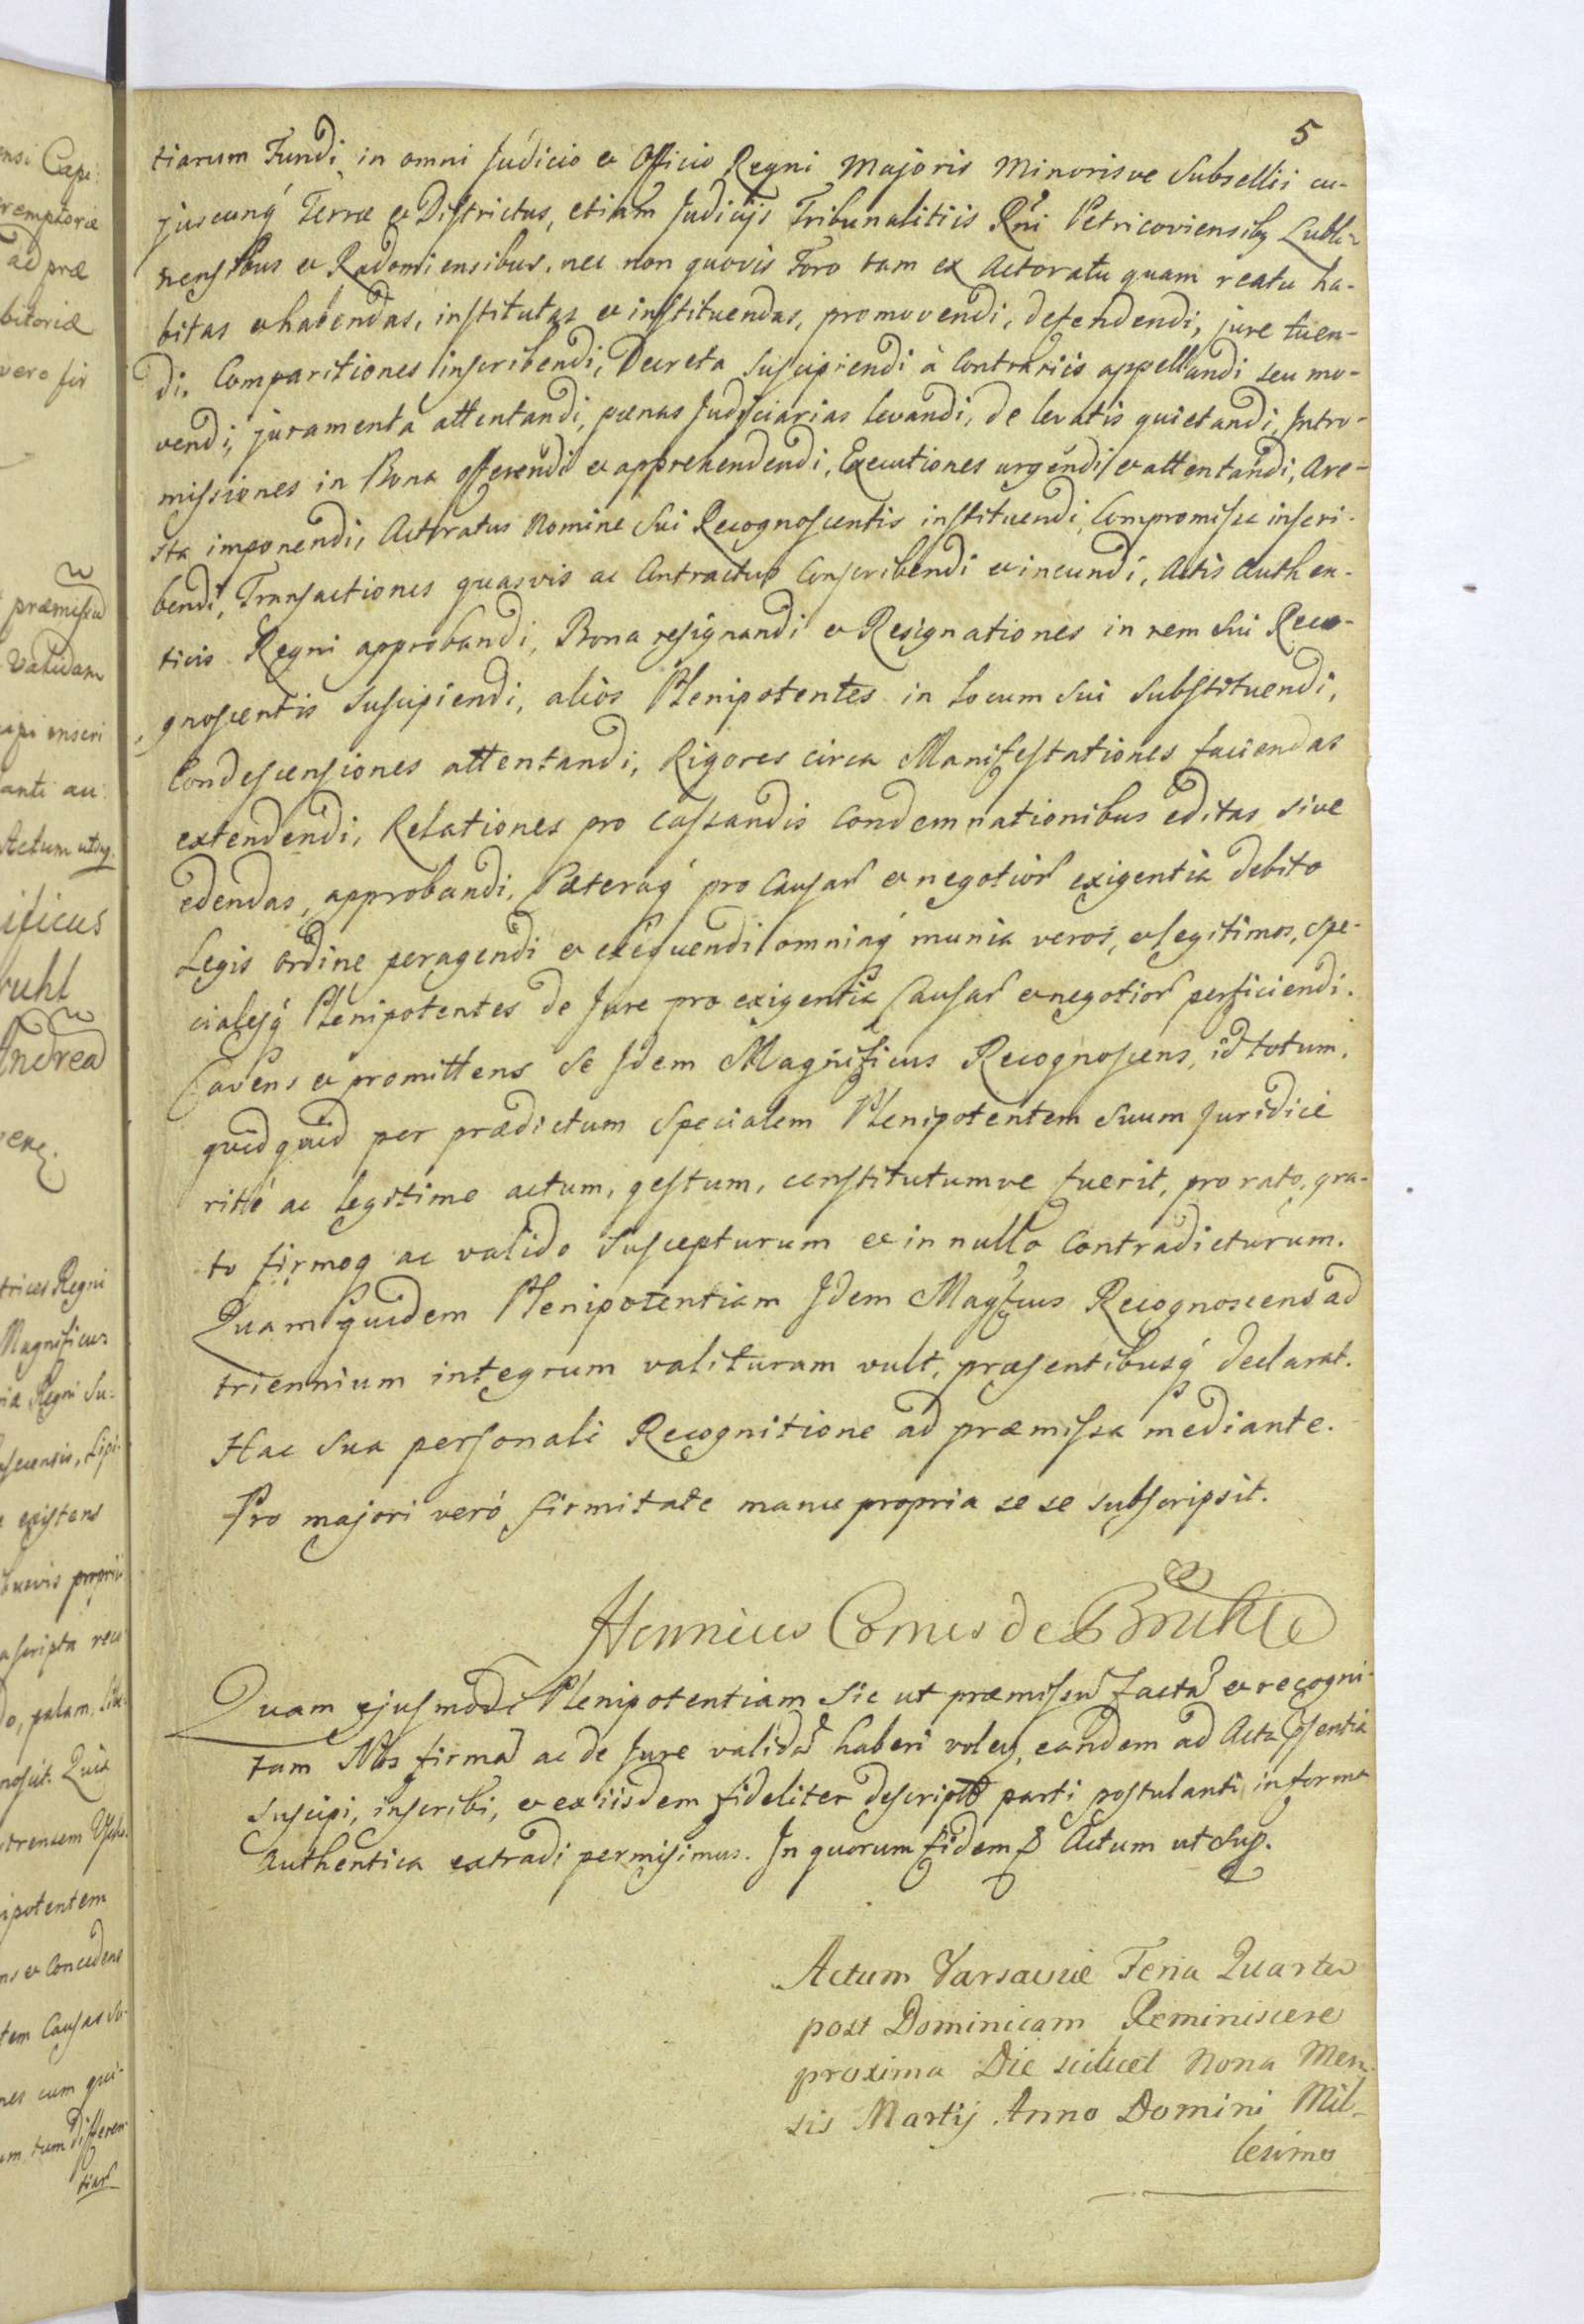 5
tiarum Fundi in omni Judicio et Officio Regni Majoris Minorisve Subsellii cu-
juscunq́ Terræ et Districtus, etiam Judicijs Tribunalitiis Rni Petricoviensibꝫ Lubli-
nensibus et Radomiensibus, nec non quovis Foro tam ex Actoratu quam reatu ha-
bitas et habendas, institutas et instituendas, promovendi, defendendi, jure tuen-
di, Comparitiones inscribendi, Decreta suscipiendi à Contrariis appellandi seu mo-
vendi, juramenta attentandi, pœnas Judiciarias levandi, de levatis quietandi, Intro-
missiones in Bona offerendi et apprehendendi, Executiones urgendi et attentandi, Are-
sta imponendi, Actoratus Nomine sui Recognoscentis instituendi, Compromissa inscri-
bendi, Transactiones quasvis ac Contractus Conscribendi et ineundi, Actis Authen-
ticis Regni approbandi, Bona resignandi et Resignationes in rem sui Reco-
gnoscentis suscipiendi, alios Plenipotentes in Locum sui substituendi,
Condescensiones attentandi, Rigores circa Manifestationes faciendas
extendendi, Relationes pro cassandis Condemnationibus editas sive
edendas, approbandi, Cæteraq́ pro Causar et negotior exigentia debito
Legis ordine peragendi et exequendi omniaq́ munia veros, et legitimos, spe-
cialesq́ Plenipotentes de Jure pro exigentia Causar et negotior perficiendi.
Cavens et promittens se Idem Magnificus Recognoscens, id totum,
quidquid per prædictum Specialem Plenipotentem suum juridicè
rittè ac legitime actum, gestum, constitutumve fuerit, pro rato, gra-
to firmoq ac valido suscepturum et in nullo Contradicturum.
Quam quidem Plenipotentiam Idem Magficus Recognoscens ad
triennium integrum valituram vult, præsentibusq́ declarat.
Hac sua personali Recognitione ad præmissa mediante.
Pro majori verò firmitate manu propria se se subscripsit.
Henricus Comes de Bruhl
Quam ejusmodi Plenipotentiam sic ut præmissu facta et recogni-
tam Nos firma ac de Jure valida haberi volen, eandem ad Acta psentia
suscipi, inscribi, et ex iisdem fideliter descript parti postulanti in forma
Authentica extradi permisimus. In quorum fidem Actum ut sup.
Actum Varsaviæ Feria Quarta
post Dominicam Reminiscere
proxima Die scilicet Nona Men-
sis Martij Anno Domini Mil-
lesimo